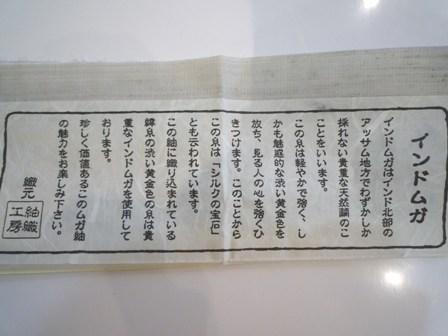 インドムガ
インドムガはインド北部の
アッサム地方でわずかしか
採れない貴重な天然繭のこ
とをいいます。
この糸は軽やかで強く、し
かも魅惑的な渋い黄金色を
放ち、見る人の心を強くひ
きつけます。このことから
この糸は「シルクの宝石」
とも云われています。
この紬に織り込まれている
緯糸の渋い黄金色の糸は貴
重なインドムガを使用して
おります。
珍しく価値あるこのムガ紬
の魅力をお楽しみ下さい。
織元
紬織
工房